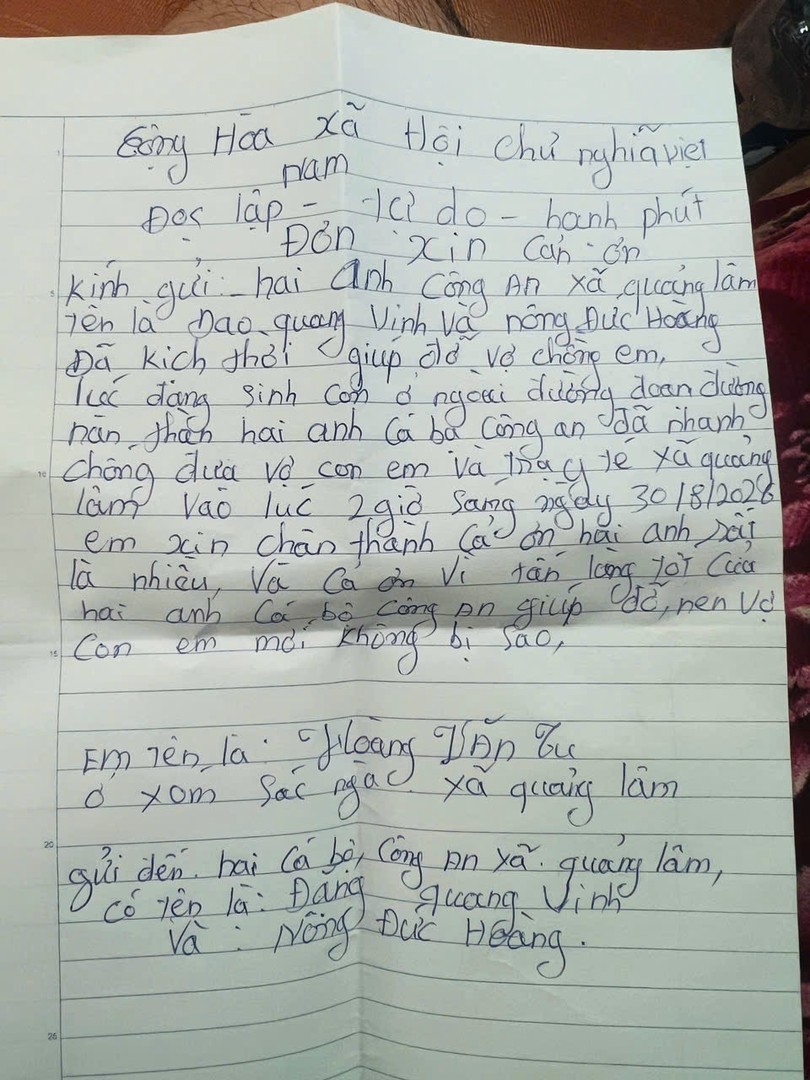 Cộng Hòa Xã Hội Chủ nghĩa việt
nam
Đọc lập - Tự do - hanh phút
Đơn xin Cản ơn
Kính gửi: hai anh Công An xã quảng lâm
Tên là Đạo quang Vinh Và nông Đức Hoàng
Đã kich thời giúp đỡ vợ chồng em,
lúc đang sinh con ở ngoài đường đoan đường
nàn thàn hai anh Cá bộ Công an đã nhanh
chống đưa vợ con em và trạy tế xã quảng
lâm vào lúc 2 giờ sáng ngày 30/8/2026
em xin chân thành Cả ơn hai anh rất
là nhiều, Và Cả ơn Vì tấn lòng tốt Của
hai anh Cá bộ Công An giúp đỡ, nen vợ
Con em mới không bị sao,
Em Tên là: Hoàng Văn Tu
ở xom Sác ngà xã quảng lâm
gửi đến hai Cá bộ, Công An xã quảng lâm,
có Tên là: Đang quang Vinh
Và: Nông Đức Hoàng.